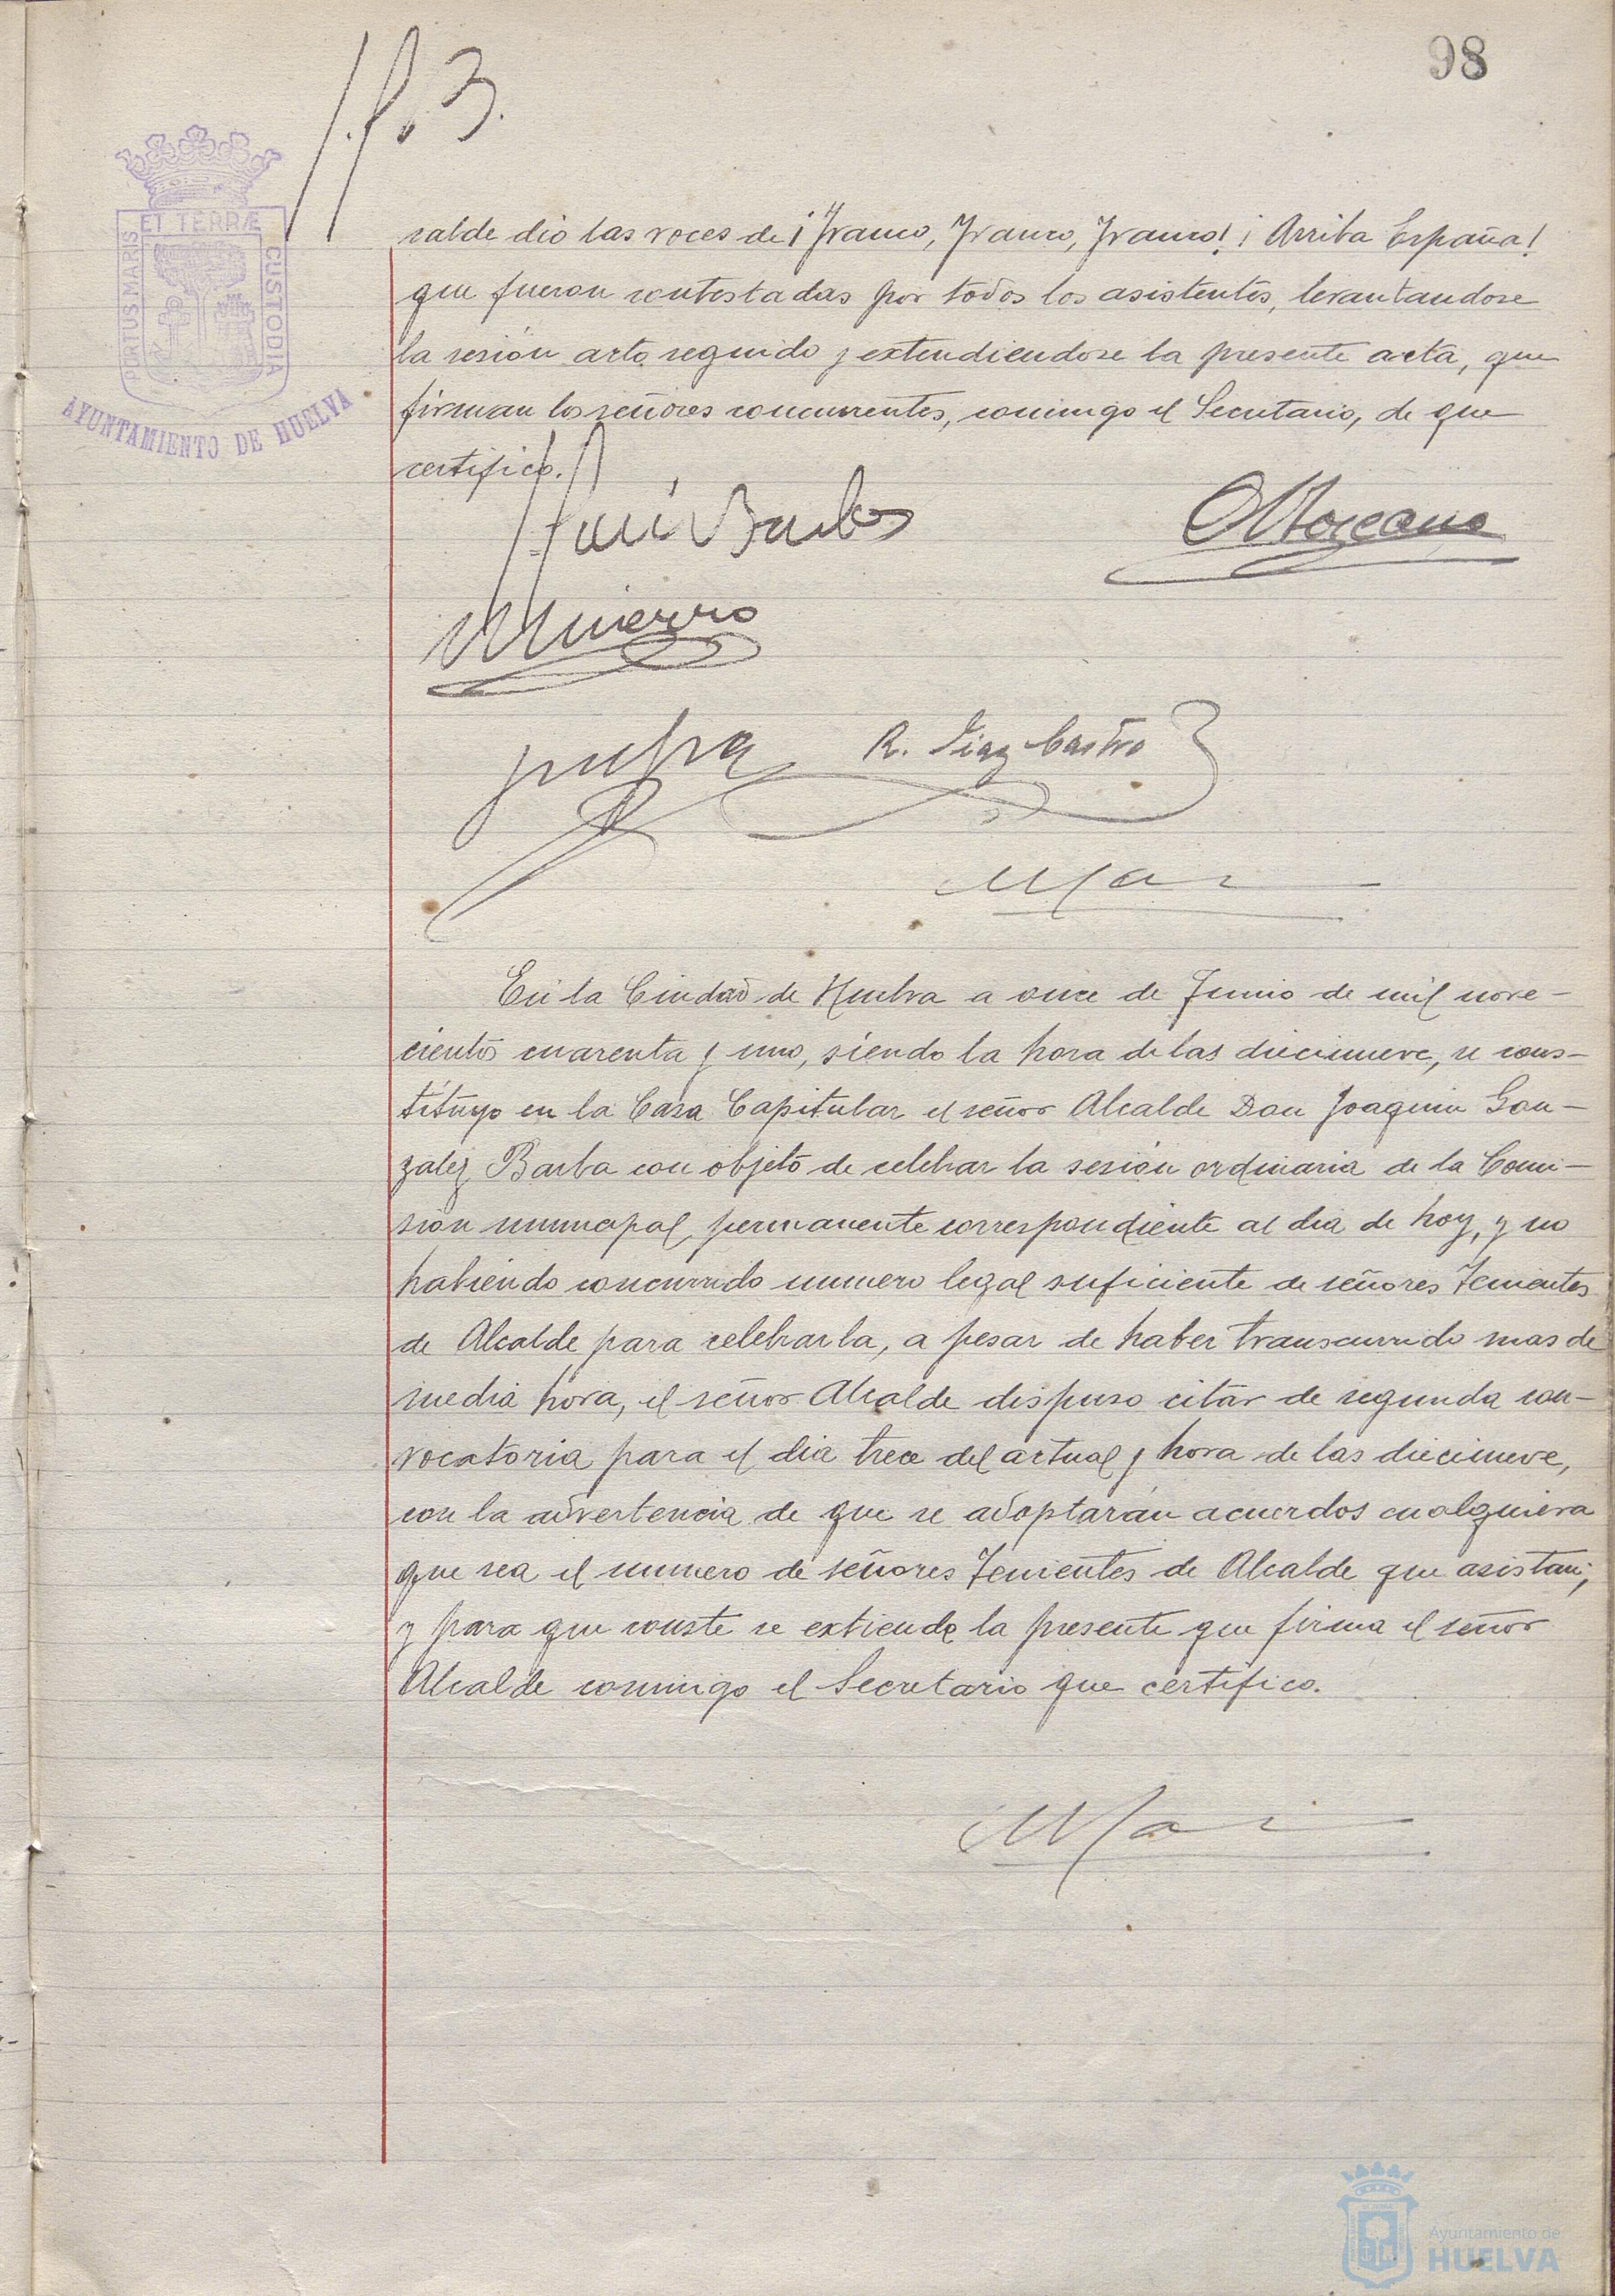 98
PORTUS MARIS
ET TERRÆ
CUSTODIA
AYUNTAMIENTO DE HUELVA
calde dió las voces de ¡Franco, Franco, Franco! ¡Arriba España!
que fueron contestadas por todos los asistentes, levantandose
la sesión acto seguido y extendiendose la presente acta, que
firman los señores concurrentes, conmigo el Secretario, de que
certifico.
R. Diaz Castro
En la Ciudad de Huelva a once de Junio de mil nove-
cientos cuarenta y uno, siendo la hora de las diecinueve, se cons-
tituyo en la Casa Capitular el señor Alcalde Don Joaquin Gon-
zalez Barba con objeto de celebrar la sesión ordinaria de la Comi-
sion municipal permanente correspondiente al dia de hoy, y no
habiendo concurrido numero legal suficiente de señores Tenientes
de Alcalde para celebrarla, a pesar de haber transcurrido mas de
media hora, el señor Alcalde dispuso citar de segunda con-
vocatoria para el dia trece del actual y hora de las diecinueve,
con la advertencia de que se adoptarán acuerdos cualquiera
que sea el numero de señores Tenientes de Alcalde que asistan;
y para que conste se extiende la presente que firma el señor
Alcalde conmigo el Secretario que certifico.
Ayuntamiento de
HUELVA